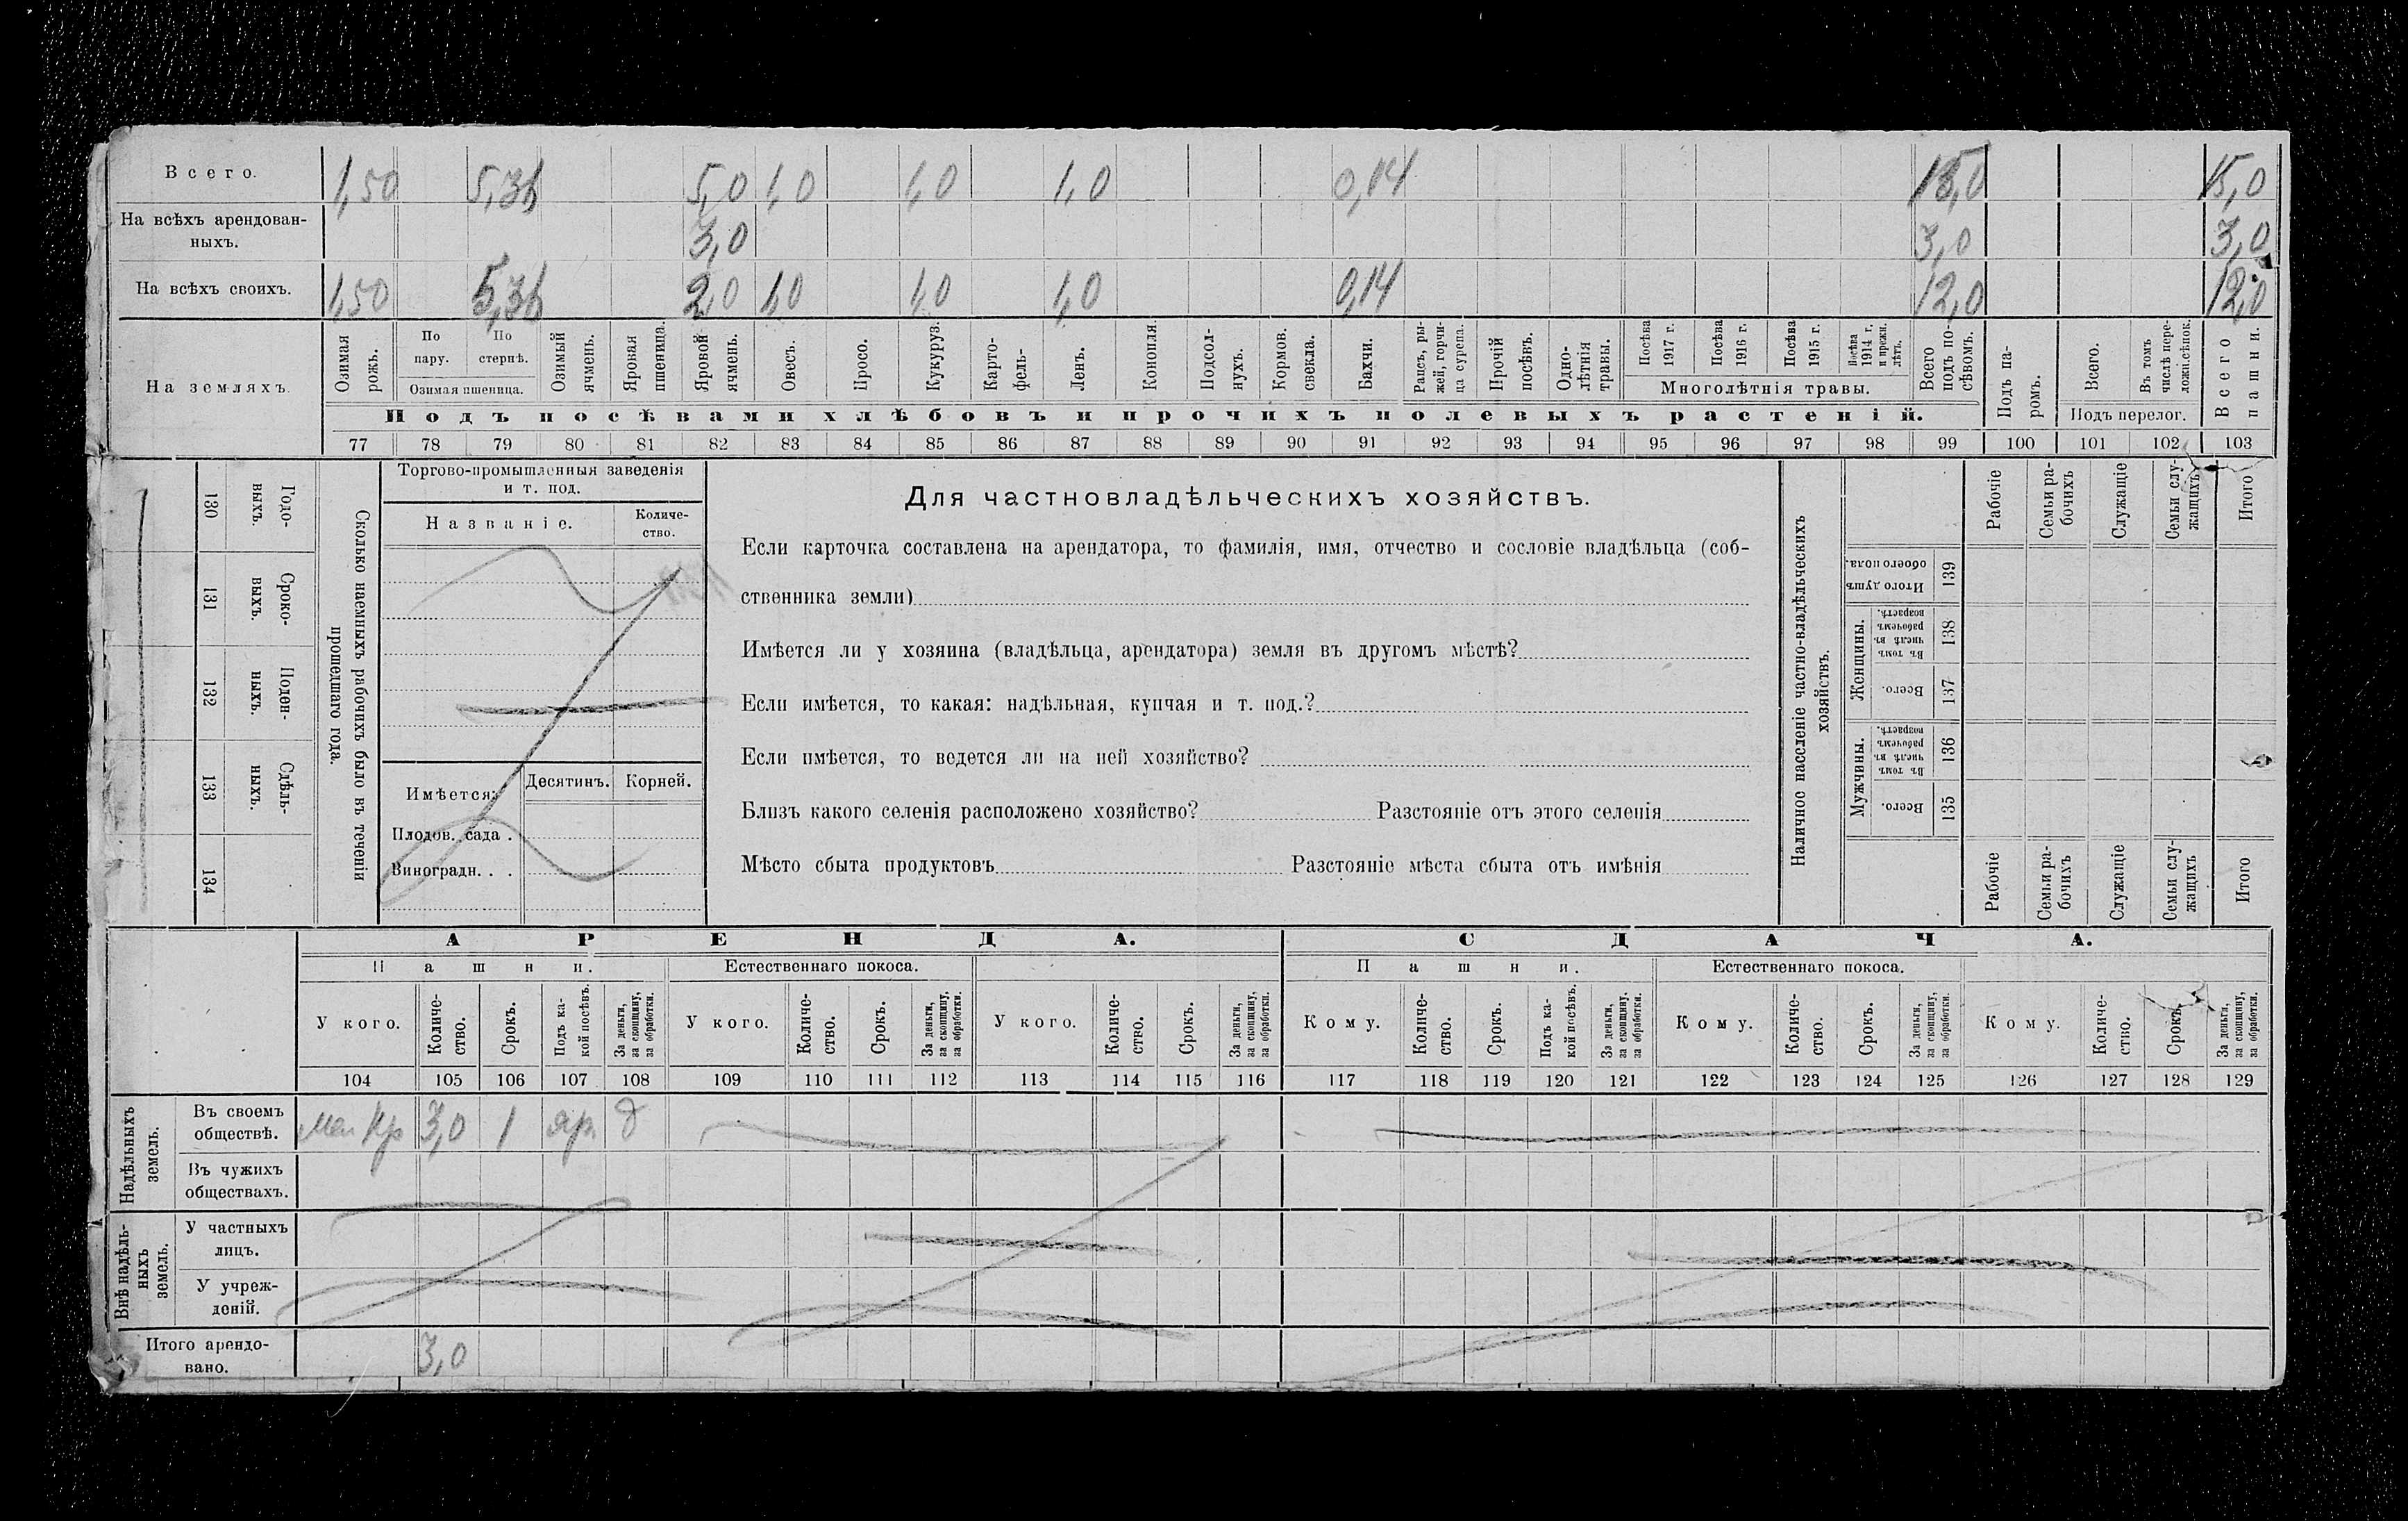 Всего. 1,50 5,36 5,0 1,0 1,0 1,0 0,14 15,0 15,0
На всѣхъ арендован-
ныхъ. 3,0 3,0 3,0
На всѣхъ своихъ. 1,50 5,36 2,0 1,0 1,0 1,0 0,14 12,0 12,0
На земляхъ.
Озимая рожь.
По пару.
По стернѣ.
Озимая пшеница.
Озимый ячмень.
Яровая пшеница.
Яровой ячмень.
Овесъ.
Просо.
Кукуруз.
Карто-
фель-
Ленъ.
Конопля.
Подсол-
нухъ.
Кормов.
свекла.
Бахчи.
Рапсъ, ры-
жей, горчи-
ца сурепа.
Прочій
посѣвъ.
Одно-
лѣтнія
травы.
Посѣва
1917 г.
Посѣва
1916 г.
Посѣва
1915 г.
Посѣва
1914 г.
и прежн.
лѣтъ.
Многолѣтнія травы.
Всего
подъ по-
сѣвомъ.
Подъ па-
ромъ.
Всего.
Въ томъ
числѣ пере-
ложн.сѣнок.
Подъ перелог.
Всего
пашни.
Подъ посѣвами хлѣбовъ и прочихъ полевыхъ растеній.
77 78 79 80 81 82 83 84 85 86 87 88 89 90 91 92 93 94 95 96 97 98 99 100 101 102 103
130 Годо-
выхъ.
131 Сроко-
выхъ.
132 Поден-
ныхъ.
133 Сдѣль-
ныхъ.
134
Сколько наемныхъ рабочихъ было въ теченіи
прошедшаго года.
Торгово-промышленныя заведенія
и т. под.
Названіе.
Количе-
ство.
Имѣется:
Десятинъ. Корней.
Плодов. сада .
Виноградн. . .
Для частновладѣльческихъ хозяйствъ.
Если карточка составлена на арендатора, то фамилія, имя, отчество и сословіе владѣльца (соб-
ственника земли)
Имѣется ли у хозяина (владѣльца, арендатора) земля въ другомъ мѣстѣ?
Если имѣется, то какая: надѣльная, купчая и т. под.?
Если имѣется, то ведется ли на ней хозяйство?
Близъ какого селенія расположено хозяйство? Разстояніе отъ этого селенія
Мѣсто сбыта продуктовъ Разстояніе мѣста сбыта отъ имѣнія
Наличное населеніе частно-владѣльческихъ
хозяйствъ.
Рабочіе
Семьи ра-
бочихъ
Служащіе
Семьи слу-
жащихъ
Итого
Итого душъ
обоего пола.
139
Женщины.
Въ томъ
числѣ въ
рабочемъ
возрастѣ.
138
Всего.
137
Мужчины.
Въ томъ
числѣ въ
рабочемъ
возрастѣ.
136
Всего.
135
Рабочіе
Семьи ра-
бочихъ
Служащіе
Семьи слу-
жащихъ
Итого
АРЕНДА. СДАЧА.
Пашни. Естественнаго покоса. Пашни. Естественнаго покоса.
У кого.
Количе-
ство.
Срокъ.
Подъ ка-
кой посѣвъ.
За деньги,
за скопщину,
за обработки.
У кого.
Количе-
ство.
Срокъ.
За деньги,
за скопщину,
за обработки.
У кого.
Количе-
ство.
Срокъ.
За деньги,
за скопщину,
за обработки.
Кому.
Количе-
ство.
Срокъ.
Подъ ка-
кой посѣвъ.
За деньги,
за скопщину,
за обработки.
Кому.
Количе-
ство.
Срокъ.
За деньги,
за скопщину,
за обработки.
Кому.
Количе-
ство.
Срокъ.
За деньги,
за скопщину,
за обработки.
104 105 106 107 108 109 110 111 112 113 114 115 116 117 118 119 120 121 122 123 124 125 126 127 128 129
Надѣльныхъ
земель.
Въ своемъ
обществѣ. кр 3,0 1 яр. д
Въ чужихъ
обществахъ.
Внѣ надѣль-
ныхъ
земель.
У частныхъ
лицъ.
У учреж-
деній.
Итого арендо-
вано. 3,0